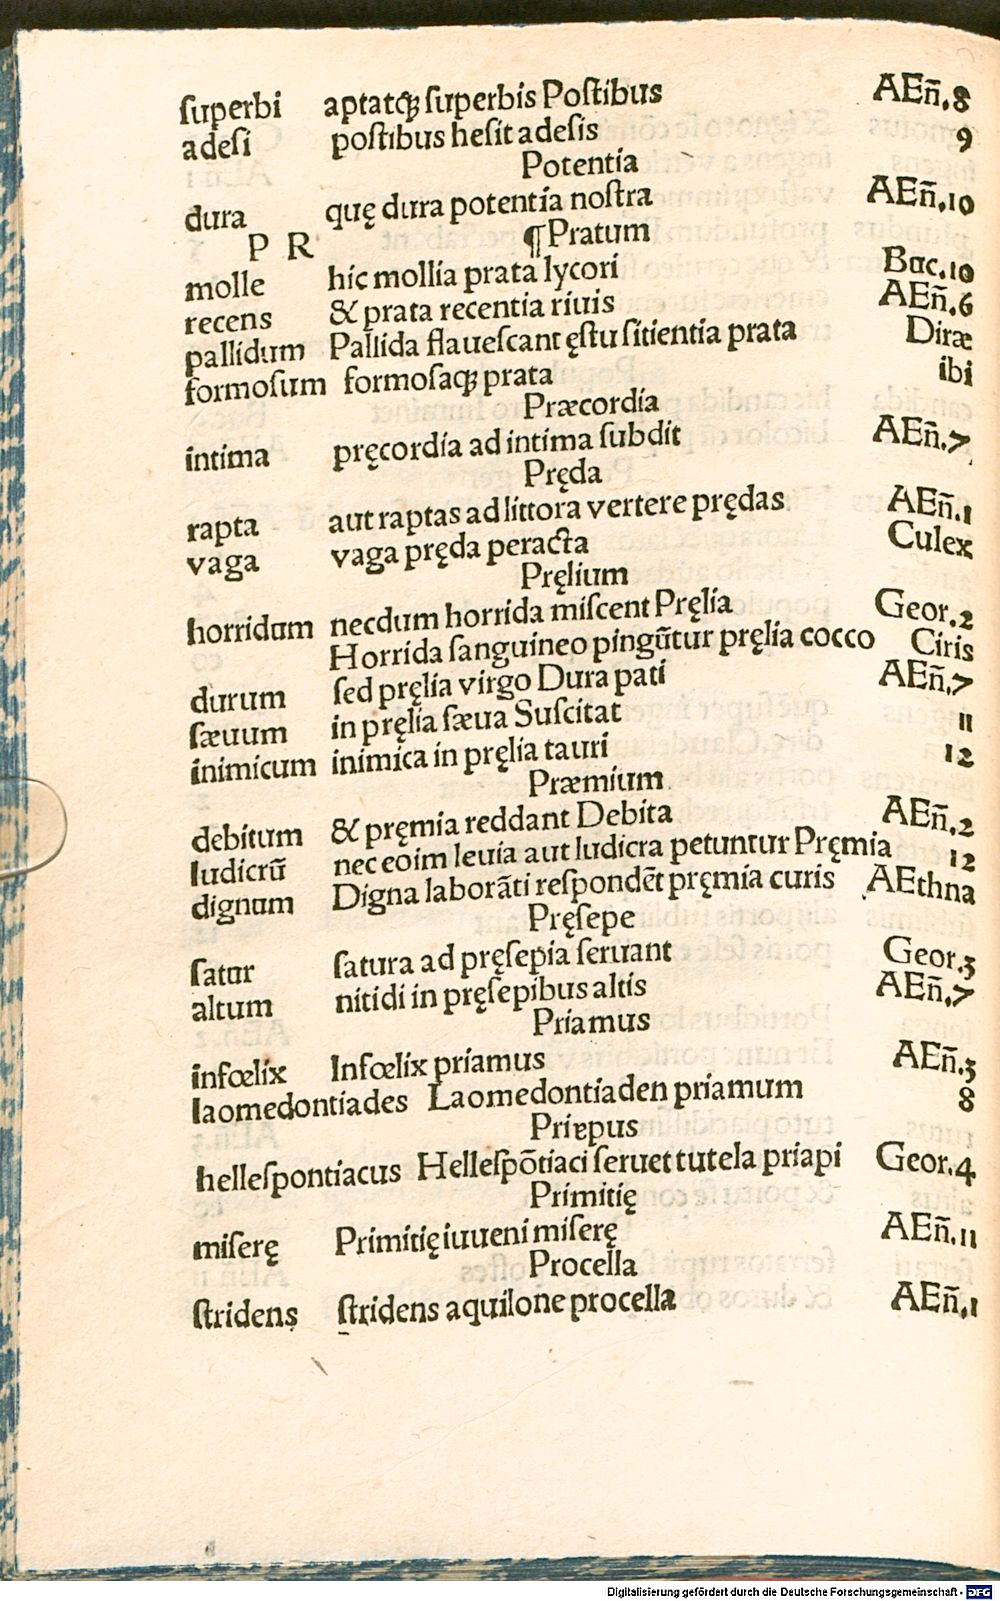 ſuperbi aptatq; ſuperbis Poſtibus AEn̄.8
adeſi poſtibus heſit adeſis 9
Potentia
dura quę dura potentia noſtra AEn̄.10
P R ¶Pratum
molle hic mollia prata lycori Buc.10
recens & prata recentia riuis AEn̄.6
pallidum Pallida flaueſcant ęſtu ſitientia prata Diræ
formoſum formoſaq; prata ibi
Præcordia
intima pręcordia ad intima ſubdit AEn̄.7
Pręda
rapta aut raptas ad littora vertere prędas AEn̄.1
vaga vaga pręda peracta Culex
Pręlium
horridum necdum horrida miſcent Pręlia Geor.2
Horrida ſanguineo pingūtur pręlia cocco Ciris
durum ſed pręlia virgo Dura pati AEn̄.7
ſæuum in pręlia ſæua Suſcitat 11
inimicum inimica in pręlia tauri 12
Præmium
debitum & pręmia reddant Debita AEn̄.2
ludicrū nec eoim leuia aut ludicra petuntur Pręmia 12
dignum Digna laborāti reſpondēt pręmia curis AEthna
Pręſepe
ſatur ſatura ad pręſepia ſeruant Geor.3
altum nitidi in pręſepibus altis AEn̄.7
Priamus
infœlix Infœlix priamus AEn̄.3
laomedontiades Laomedontiaden priamum 8
Priepus
helleſpontiacus Helleſpōtiaci ſeruet tutela priapi Geor.4
Primitię
miſerę Primitię iuueni miſerę AEn̄.11
Procella
ſtridens ſtridens aquilone procella AEn̄.1
Digitalisierung gefördert durch die Deutsche Forschungsgemeinschaft - DFG